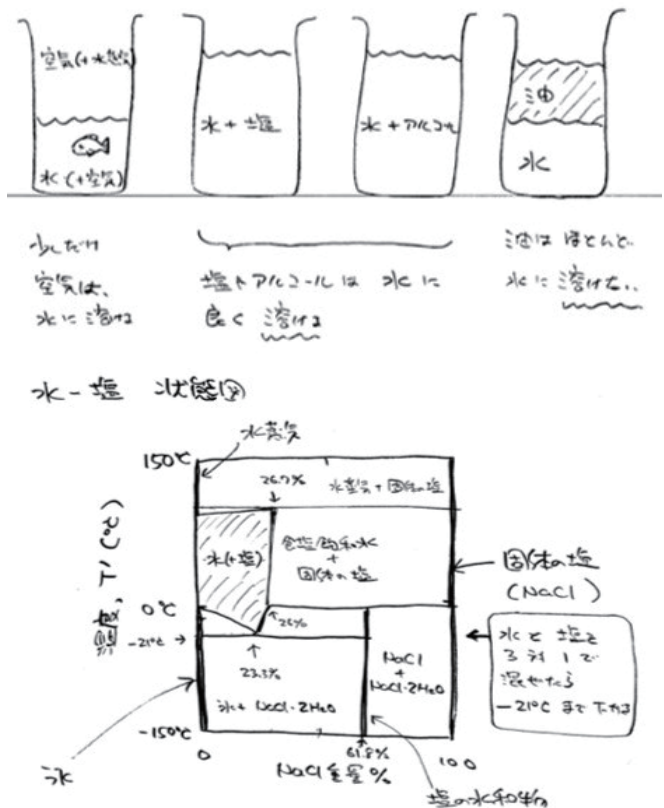 空気(+水蒸気)
水(+空気)
水+塩
水+アルコール
油
水
少しだけ
空気は、
水に溶ける
塩とアルコールは 水に
良く 溶ける
油は ほとんど
水に溶けない
水-塩 状態図
水蒸気
150℃
26.7%
水蒸気+固体の塩
水(+塩)
食塩飽和水
+
固体の塩
固体の塩
(NaCl)
T (℃)
0℃
-21℃
26%
23.3%
氷+NaCl・2H2O
NaCl
+
NaCl・2H2O
水と塩を
3対1で
混ぜたら
-21℃まで下がる
-150℃
0
61.8%
100
NaCl重量%
氷
塩の水和物